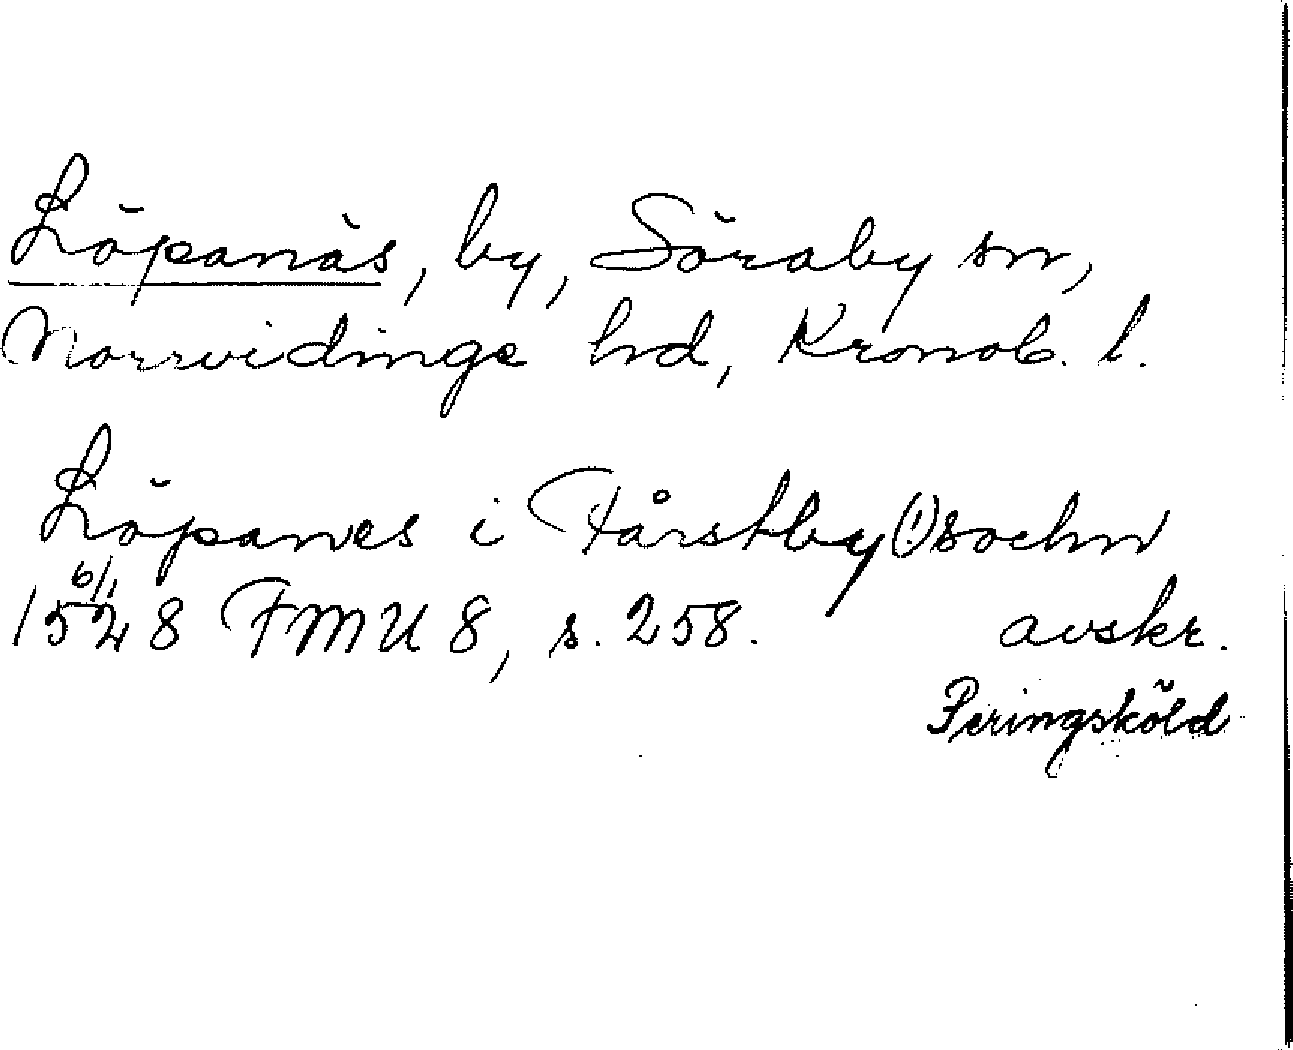 Löpanäs, by, Söraby sn,
Norrvidinge hd, Kronob. l.
Löpanes i Fårstby(!)sochn
6/1
1528 FMU 8, s. 258. avskr.
Peringsköld